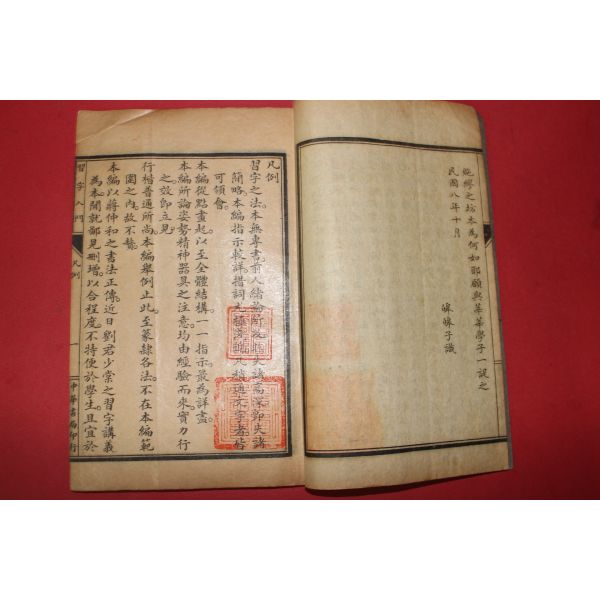 紕繆之坊本為何如耶願與莘莘學子一説之
民國八年十月
子識
凡例
習字之法本無專書前人緒論所及非失諸高深即失諸
簡略本編指示較詳措詞尤極淺顯凡稍通文字者皆
可領會
本編從點畫起以至全體結構一一指示最為詳盡
本編所論姿勢精神器具之注意均由經驗而來實力行
之效即立見
行楷普通所尚本編舉例止此至篆隸各法不在本編範
圍之內故不贅
本編以蔣仲和之書法正傳近日劉君少棠之習字講義
為本間就鄙見刪增以合程度不特便於學生且宜於
習字入門
凡例
一
中華書局印行